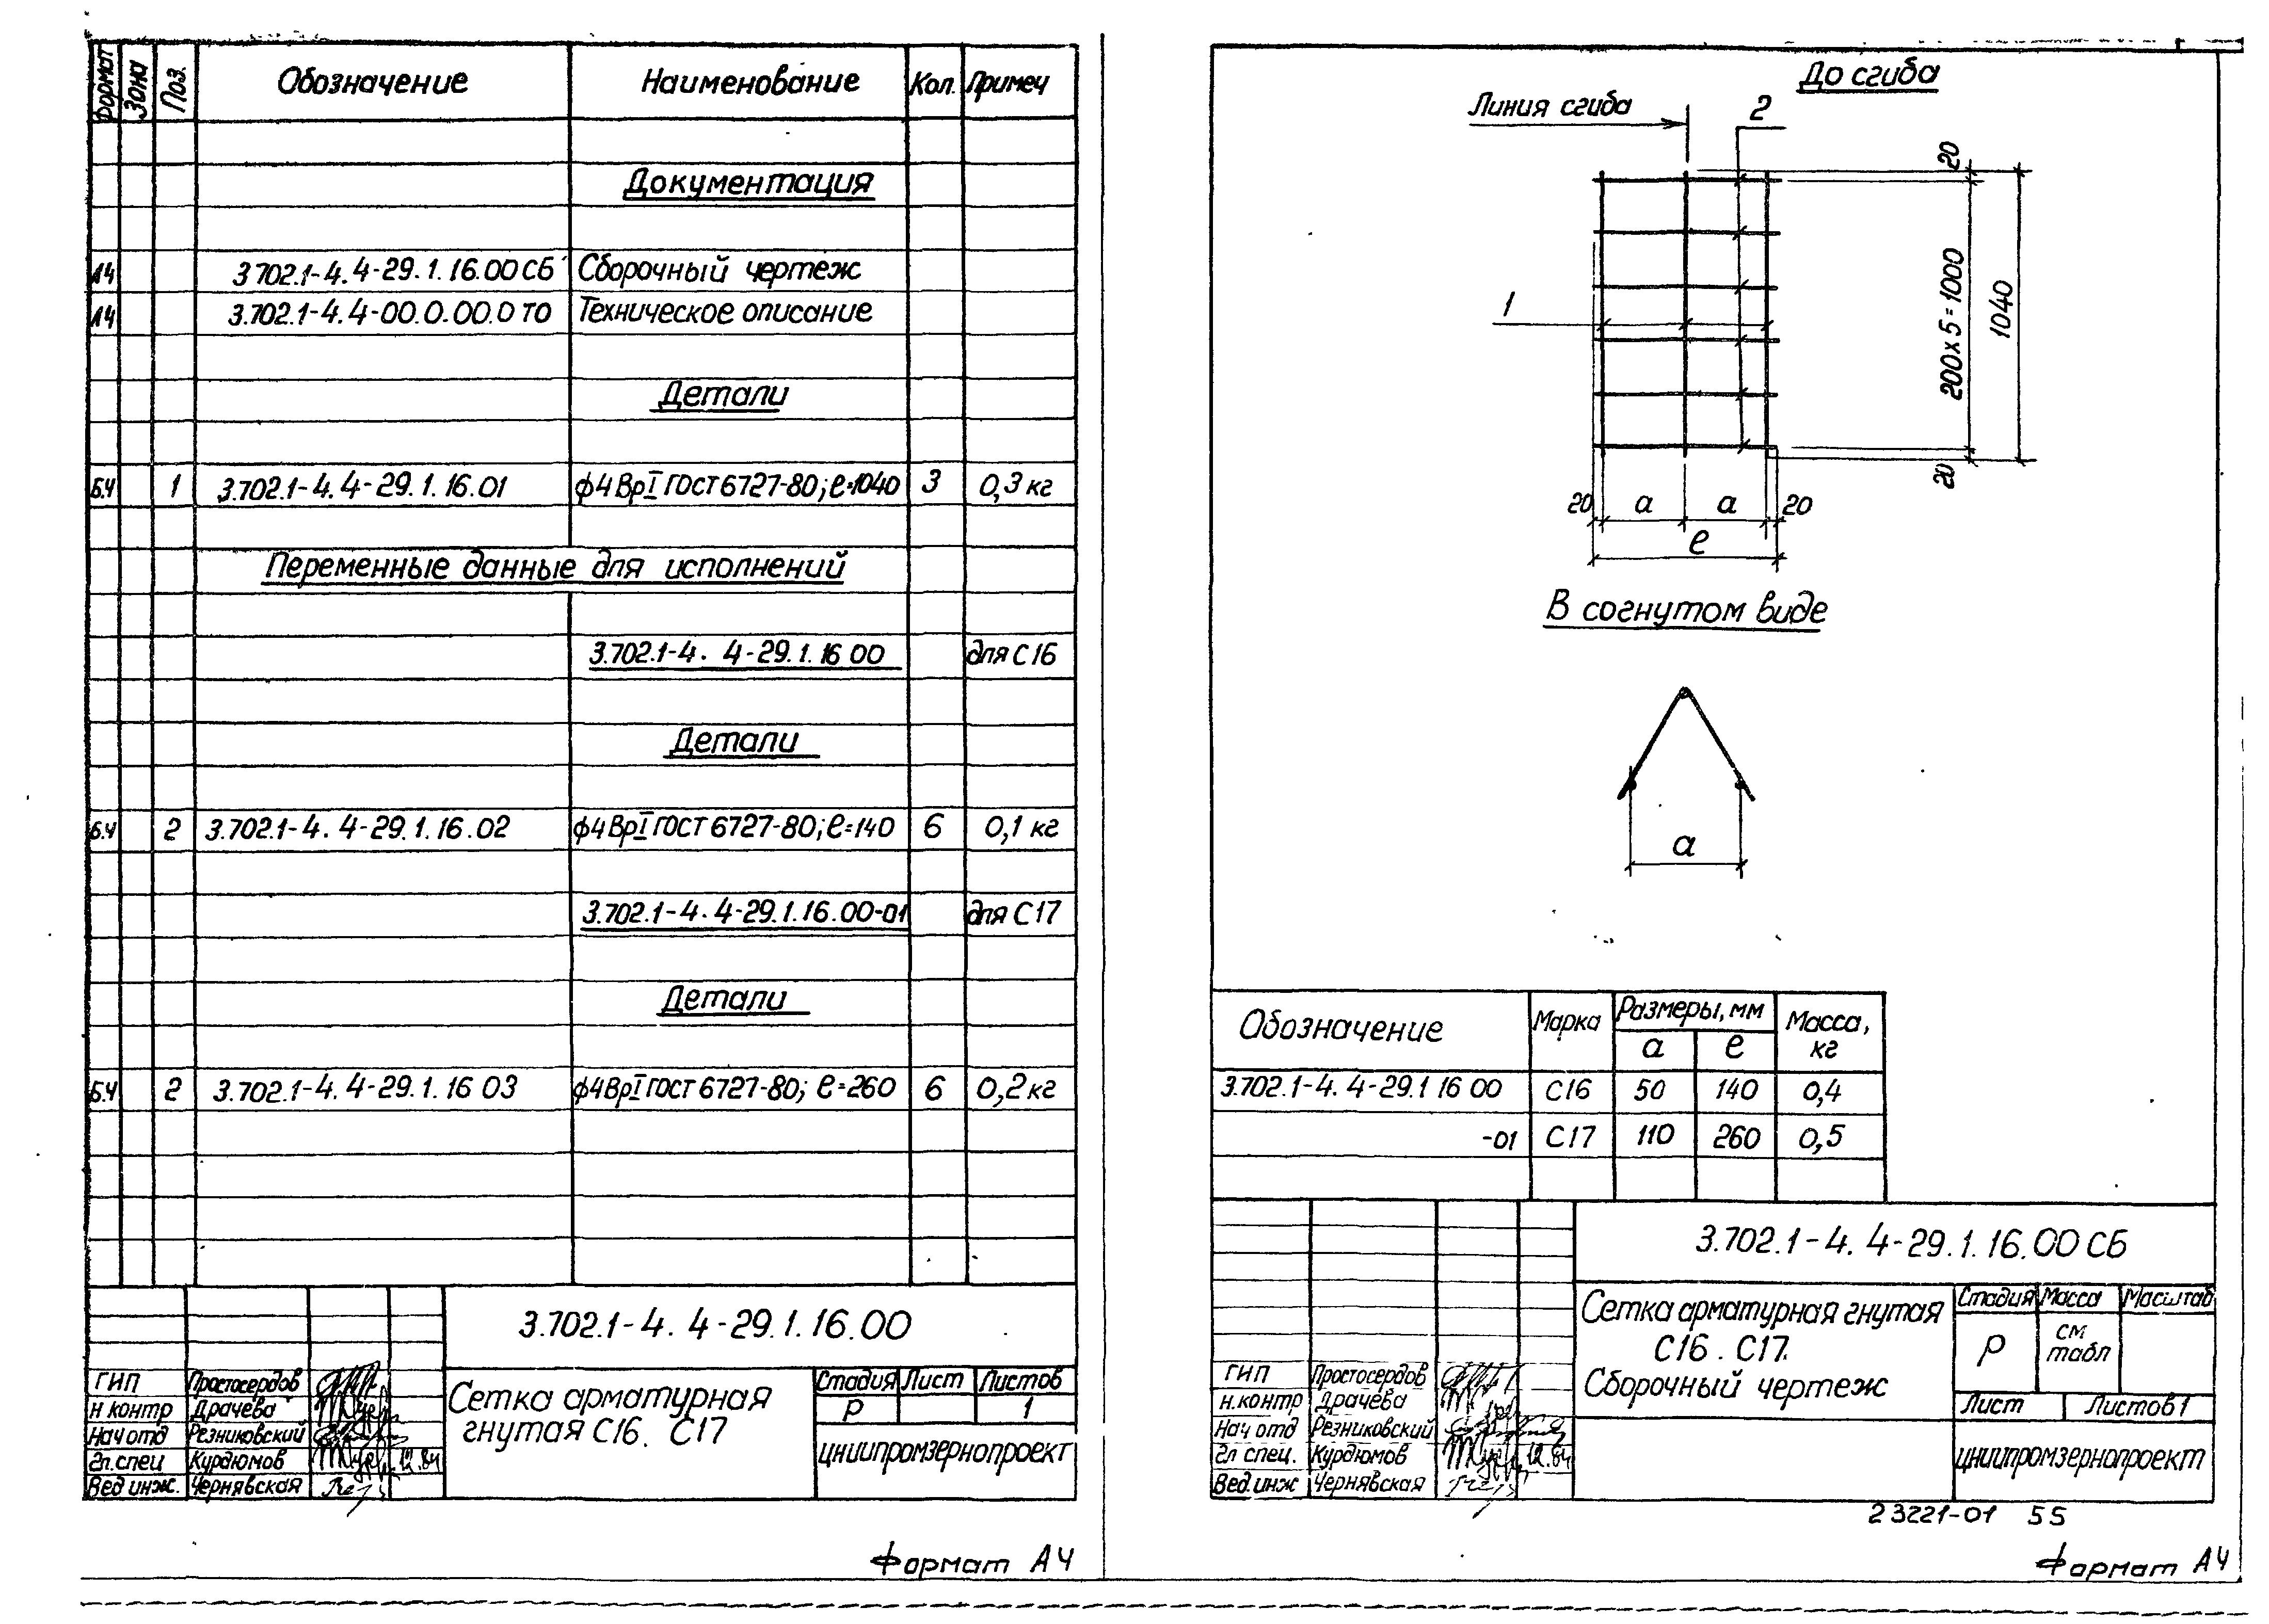 Формат Зона Поз. Обозначение Наименование Кол. Примеч
Документация
А4 3.702.1-4.4-29.1.16.00 СБ Сборочный чертеж
А4 3.702.1-4.4-00.0.00.0 ТО Техническое описание
Детали
Б.Ч 1 3.702.1-4.4-29.1.16.01 ф4 ВрI ГОСТ 6727-80; ℓ=1040 3 0,3 кг
Переменные данные для исполнений
3.702.1-4. 4-29.1.16 00 для С16
Детали
Б.Ч 2 3.702.1-4.4-29.1.16.02 ф4 ВрI ГОСТ 6727-80; ℓ=140 6 0,1 кг
3.702.1-4.4-29.1.16.00-01 для С17
Детали
Б.Ч 2 3.702.1-4.4-29.1.16 03 ф4 ВрI ГОСТ 6727-80; ℓ=260 6 0,2 кг
3.702.1-4.4-29.1.16.00
ГИП Простосердов
Н контр Драчева
Нач отд Резниковский
Гл. спец Курдюмов 12.84
Вед инж. Чернявская
Сетка арматурная
гнутая С16. С17
Стадия Лист Листов
Р 1
ЦНИИПРОМЗЕРНОПРОЕКТ
Формат А4
До сгиба
Линия сгиба
2
1
20
200х5=1000
1040
20
20 а а 20
ℓ
В согнутом виде
а
Обозначение Марка Размеры, мм Масса, кг
а ℓ
3.702.1-4.4-29.1 16 00 С16 50 140 0,4
-01 С17 110 260 0,5
3.702.1-4.4-29.1.16.00 СБ
ГИП Простосердов
Н.контр Драчева
Нач отд Резниковский
Гл спец. Курдюмов 12.84
Вед.инж Чернявская
Сетка арматурная гнутая
С16. С17.
Сборочный чертеж
Стадия Масса Масштаб
Р см табл
Лист Листов 1
ЦНИИПРОМЗЕРНОПРОЕКТ
23221-01 55
Формат А4